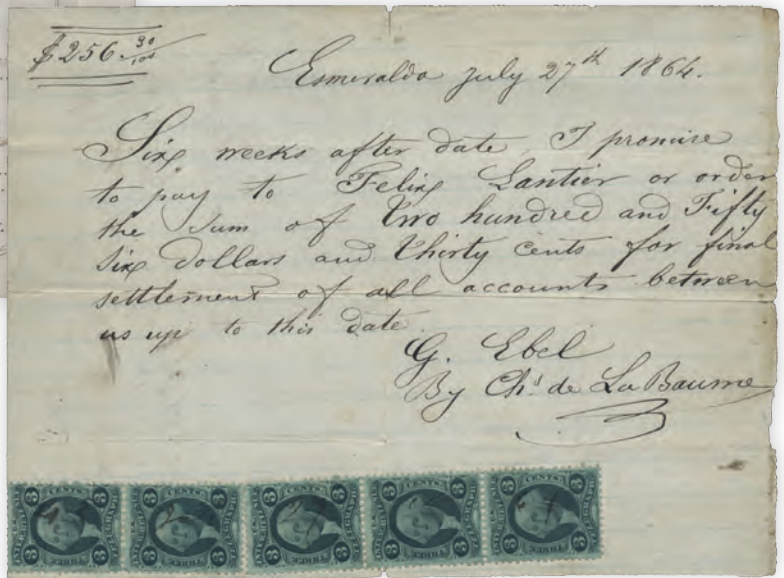 $256.30/100
Esmeralda July 27th 1864.
Six weeks after date, I promise
to pay to Felix Lantier or order
the sum of Two hundred and Fifty
six dollars and thirty cents for final
settlement of all accounts between
us up to this date.
G. Ebel
By Chs de La Baume
3 CENTS 3 3 CENTS 3 3 CENTS 3 3 CENTS 3 3 CENTS 3